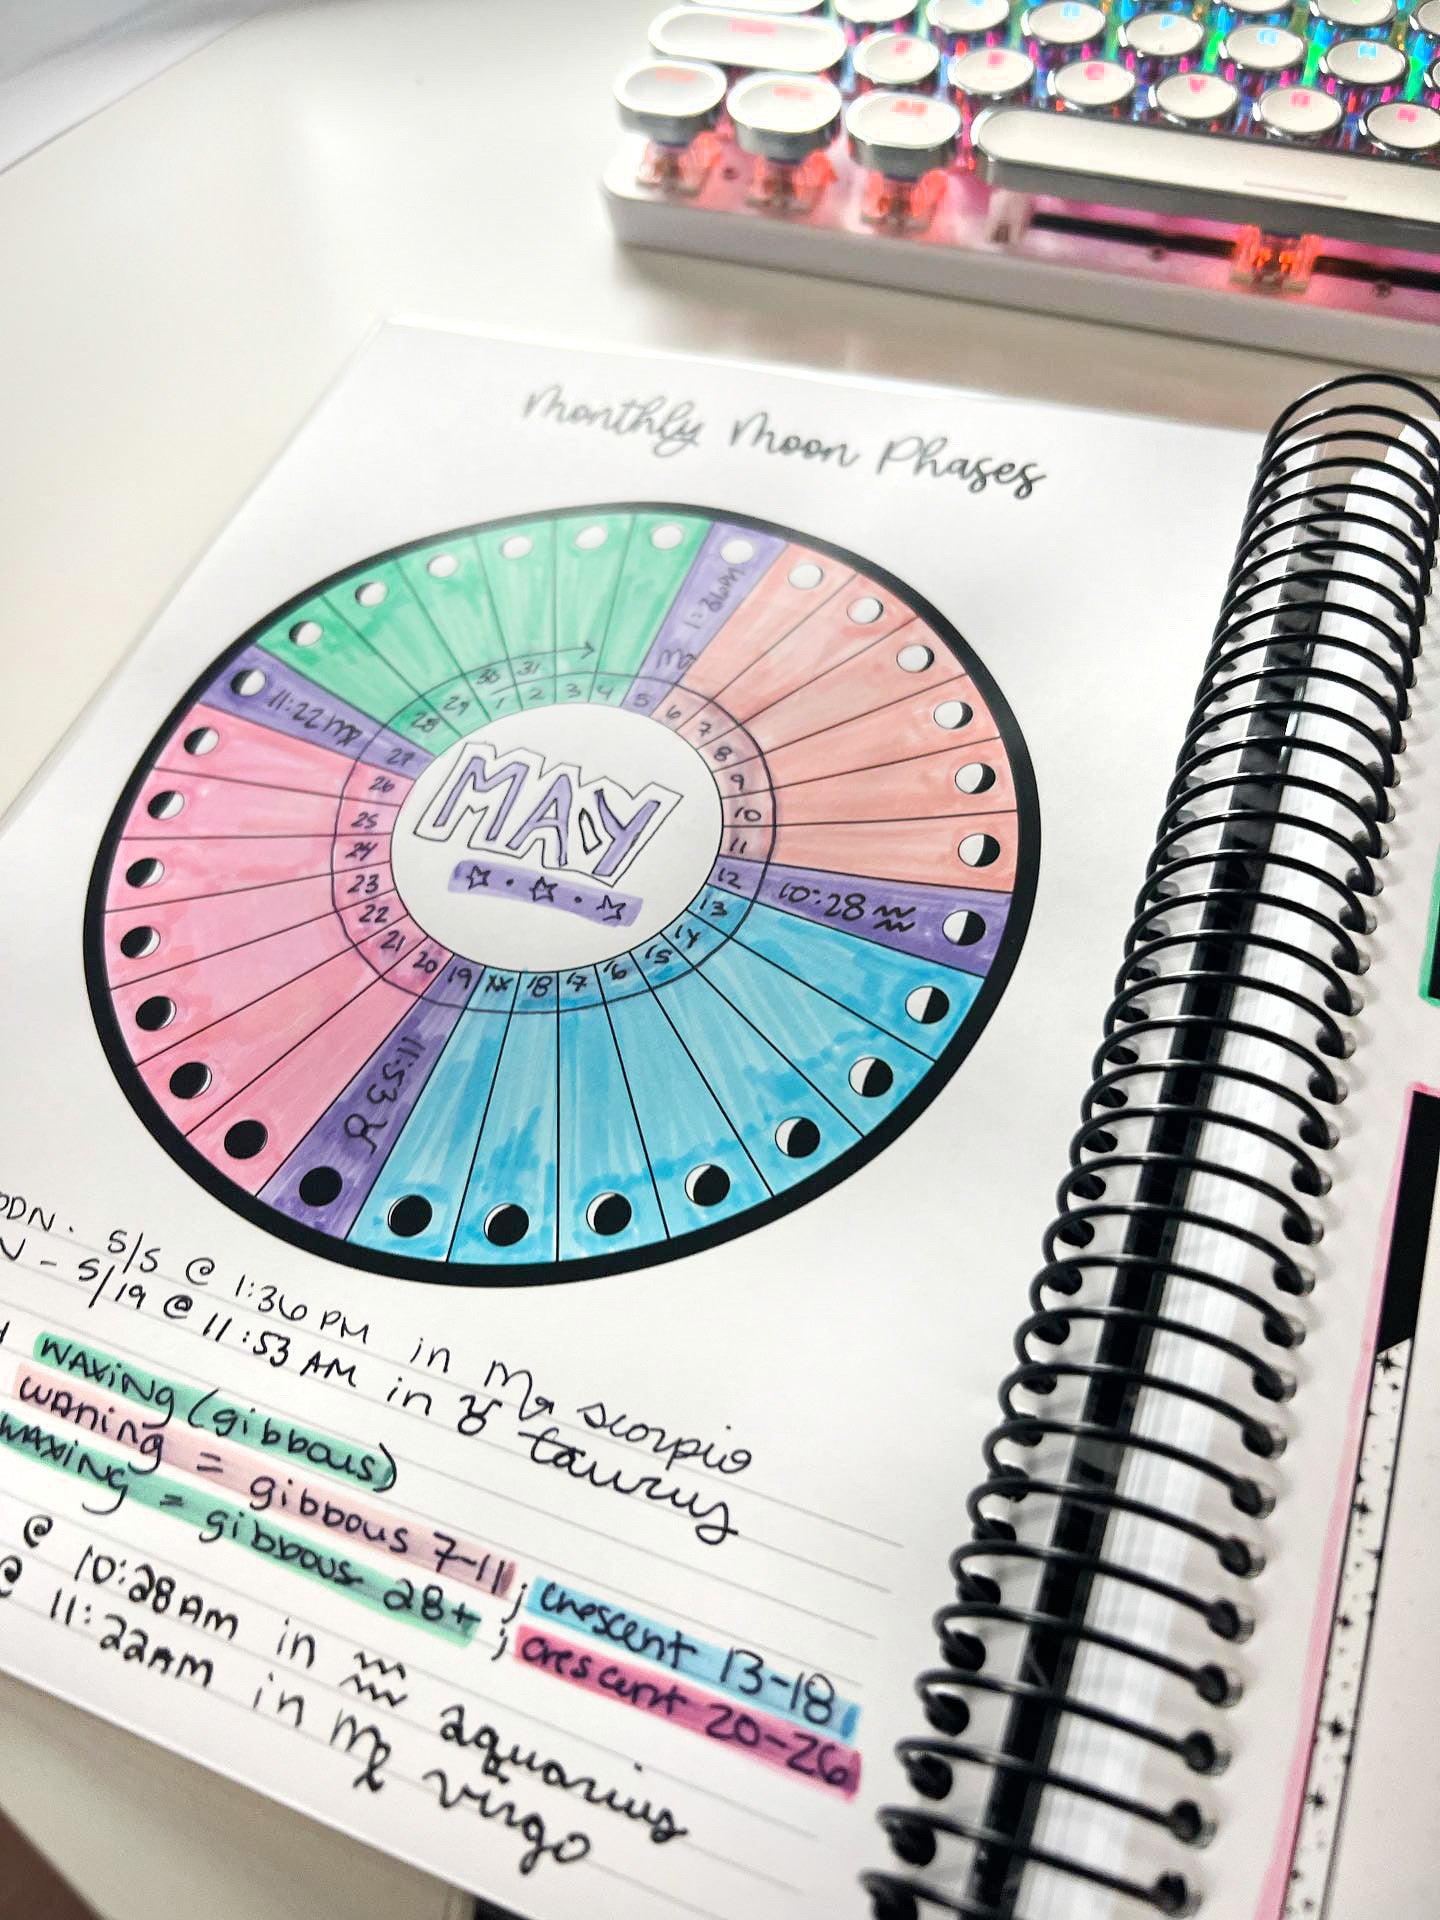 Monthly Moon Phases
1:36pm ♏
11:22 ♍
30 31
28 29 1 2 3 4 5 6 7 8 9 10 11 12 13 14 15 16 17 18 19 20 21 22 23 24 25 26 27
MAY
10:28 ♒
11:53 ♉
5/5 @ 1:36 PM in ♏ scorpio
5/19 @ 11:53 AM in ♉ taurus
waxing (gibbous)
waning = gibbous 7-11; crescent 13-18
waxing = gibbous 28+; crescent 20-26
@ 10:28AM in ♒ aquarius
@ 11:22AM in ♍ virgo